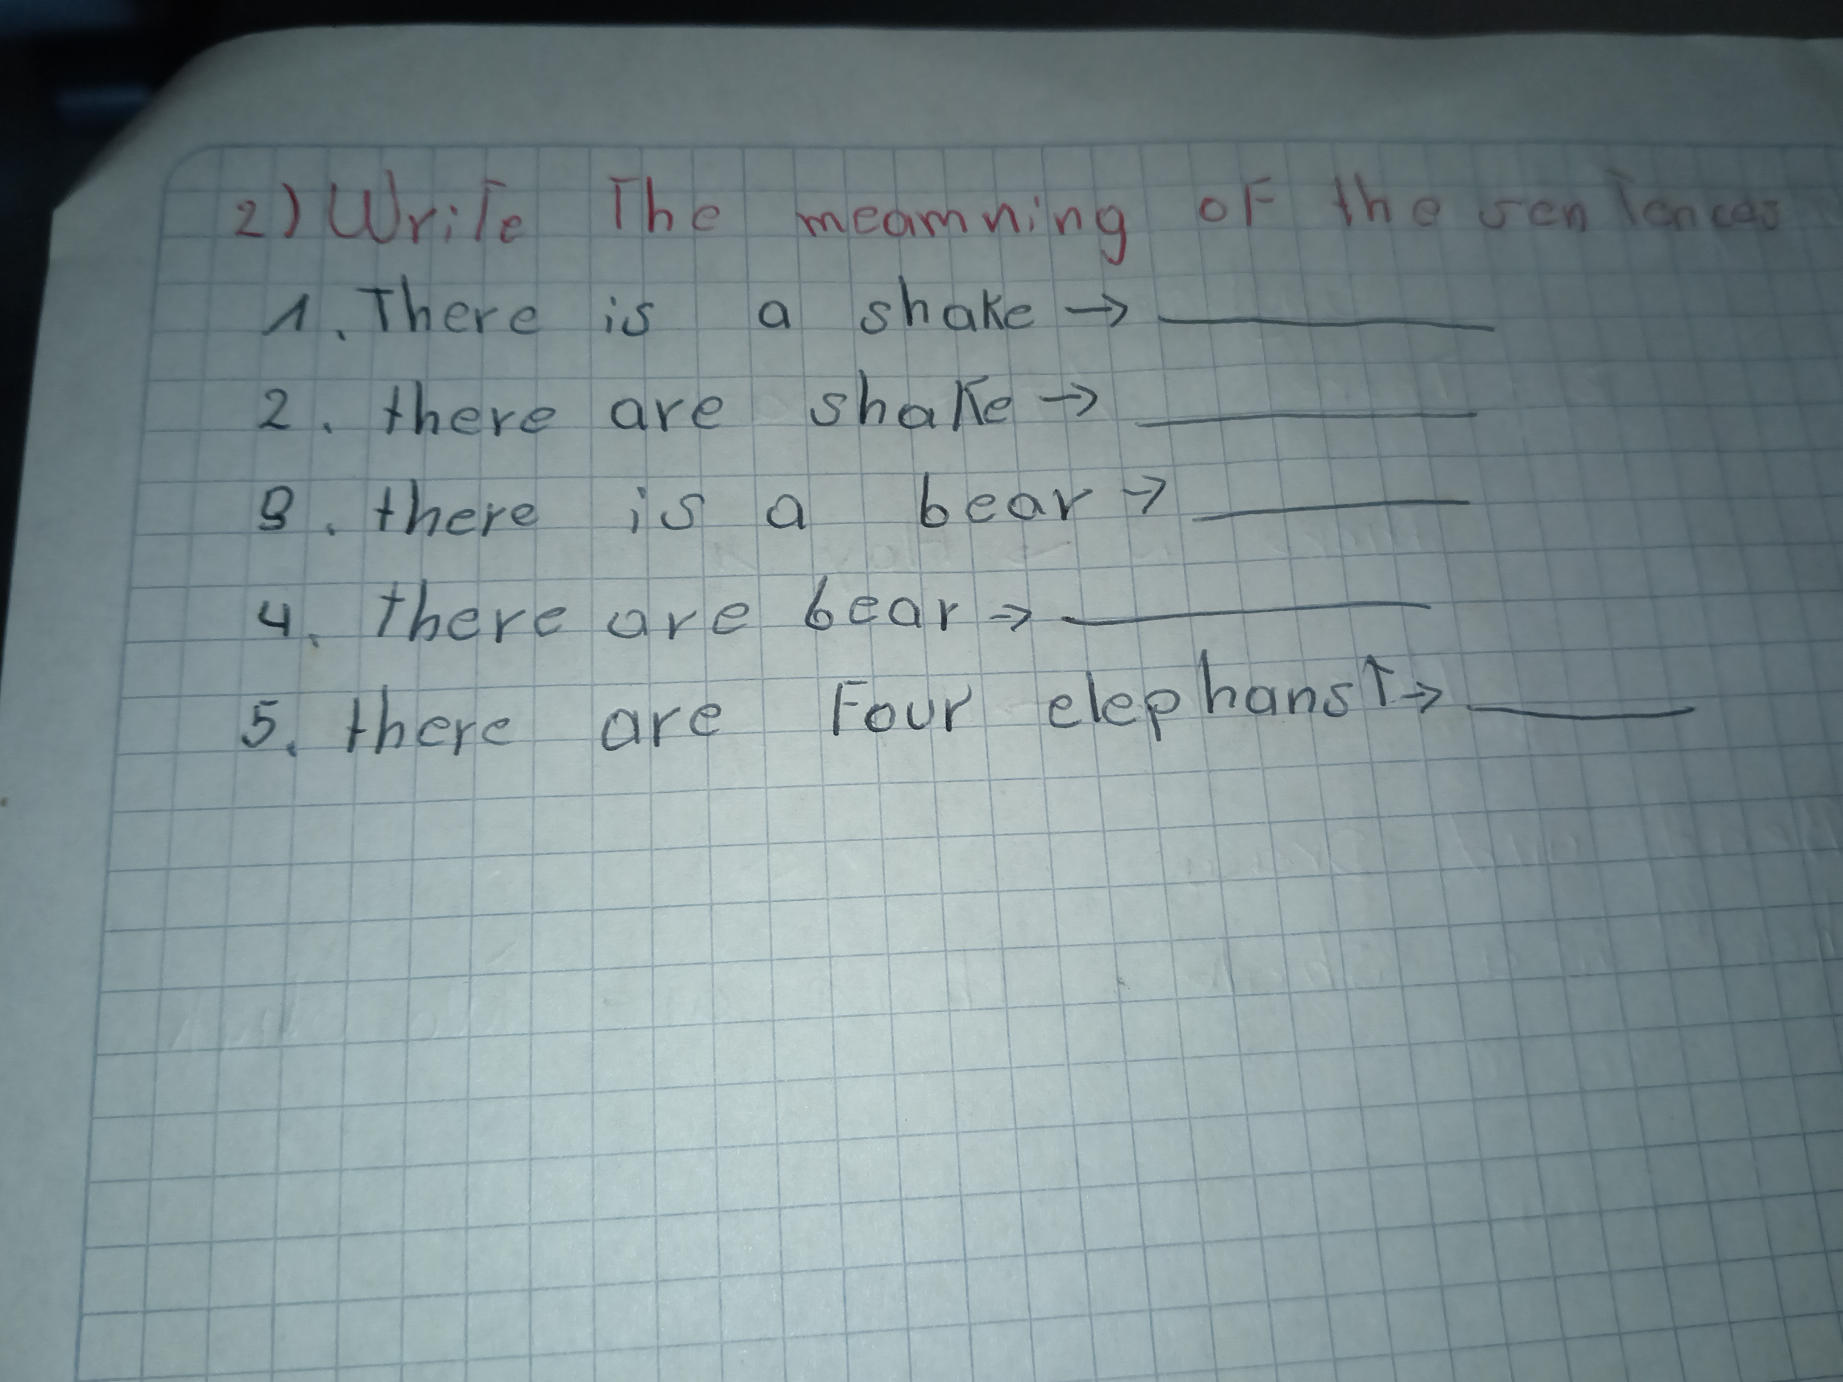 2) Write The meamning of the sentences
1. There is a shake → ________
2. there are shake → ________
3. there is a bear → ________
4. there are bear → ________
5. there are Four elephansT → ________